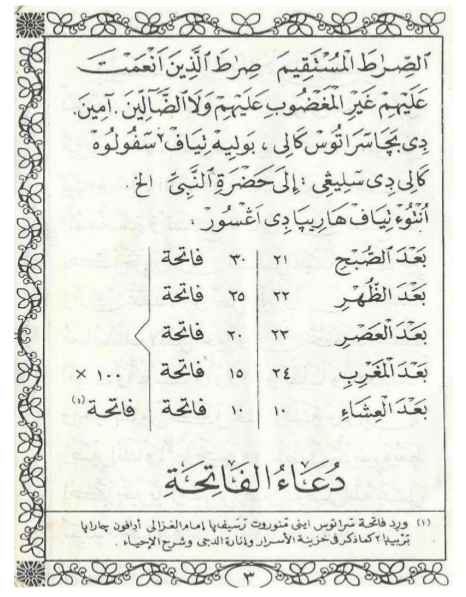 الصِّرٰطَ الْمُسْتَقِيمَ صِرٰطَ الَّذِينَ اَنْعَمْتَ
عَلَيْهِمْ غَيْرِ الْمَغْضُوبِ عَلَيْهِمْ وَلَا الضَّالِّينَ. اٰمِينَ.
دِى بَچَا سَرَاتُوسْ كَالِى، بَولَيهْ تِيَافْ٢ سَفُولُوهْ
كَالِى دِى سَلِيڠِى : اِلَى حَضْرَةِ النَّبِىّ الخ
اُنْتُوءْ تِيَافْ هَارِيپَا دِى اَڠْسُورْ.
بَعْدَ الصُّبْحِ ٢١ ٣٠ فاتحة
بَعْدَ الظُّهْرِ ٢٢ ٢٥ فاتحة
بَعْدَ الْعَصْرِ ٢٣ ٢٠ فاتحة
بَعْدَ الْمَغْرِبِ ٢٤ ١٥ فاتحة ١٠٠ ×
بَعْدَ الْعِشَاءِ ١٠ ١٠ فاتحة فاتحة (١)
دُعَاءُ الْفَاتِحَةِ
(١) ورد فاتحة سراتوس اينى منوروت امام الغزالى ادافون چاراپا
٢ كما ذكر فى خزينة الأسرار وانارة الدجى وشرح الإحياء.
٣